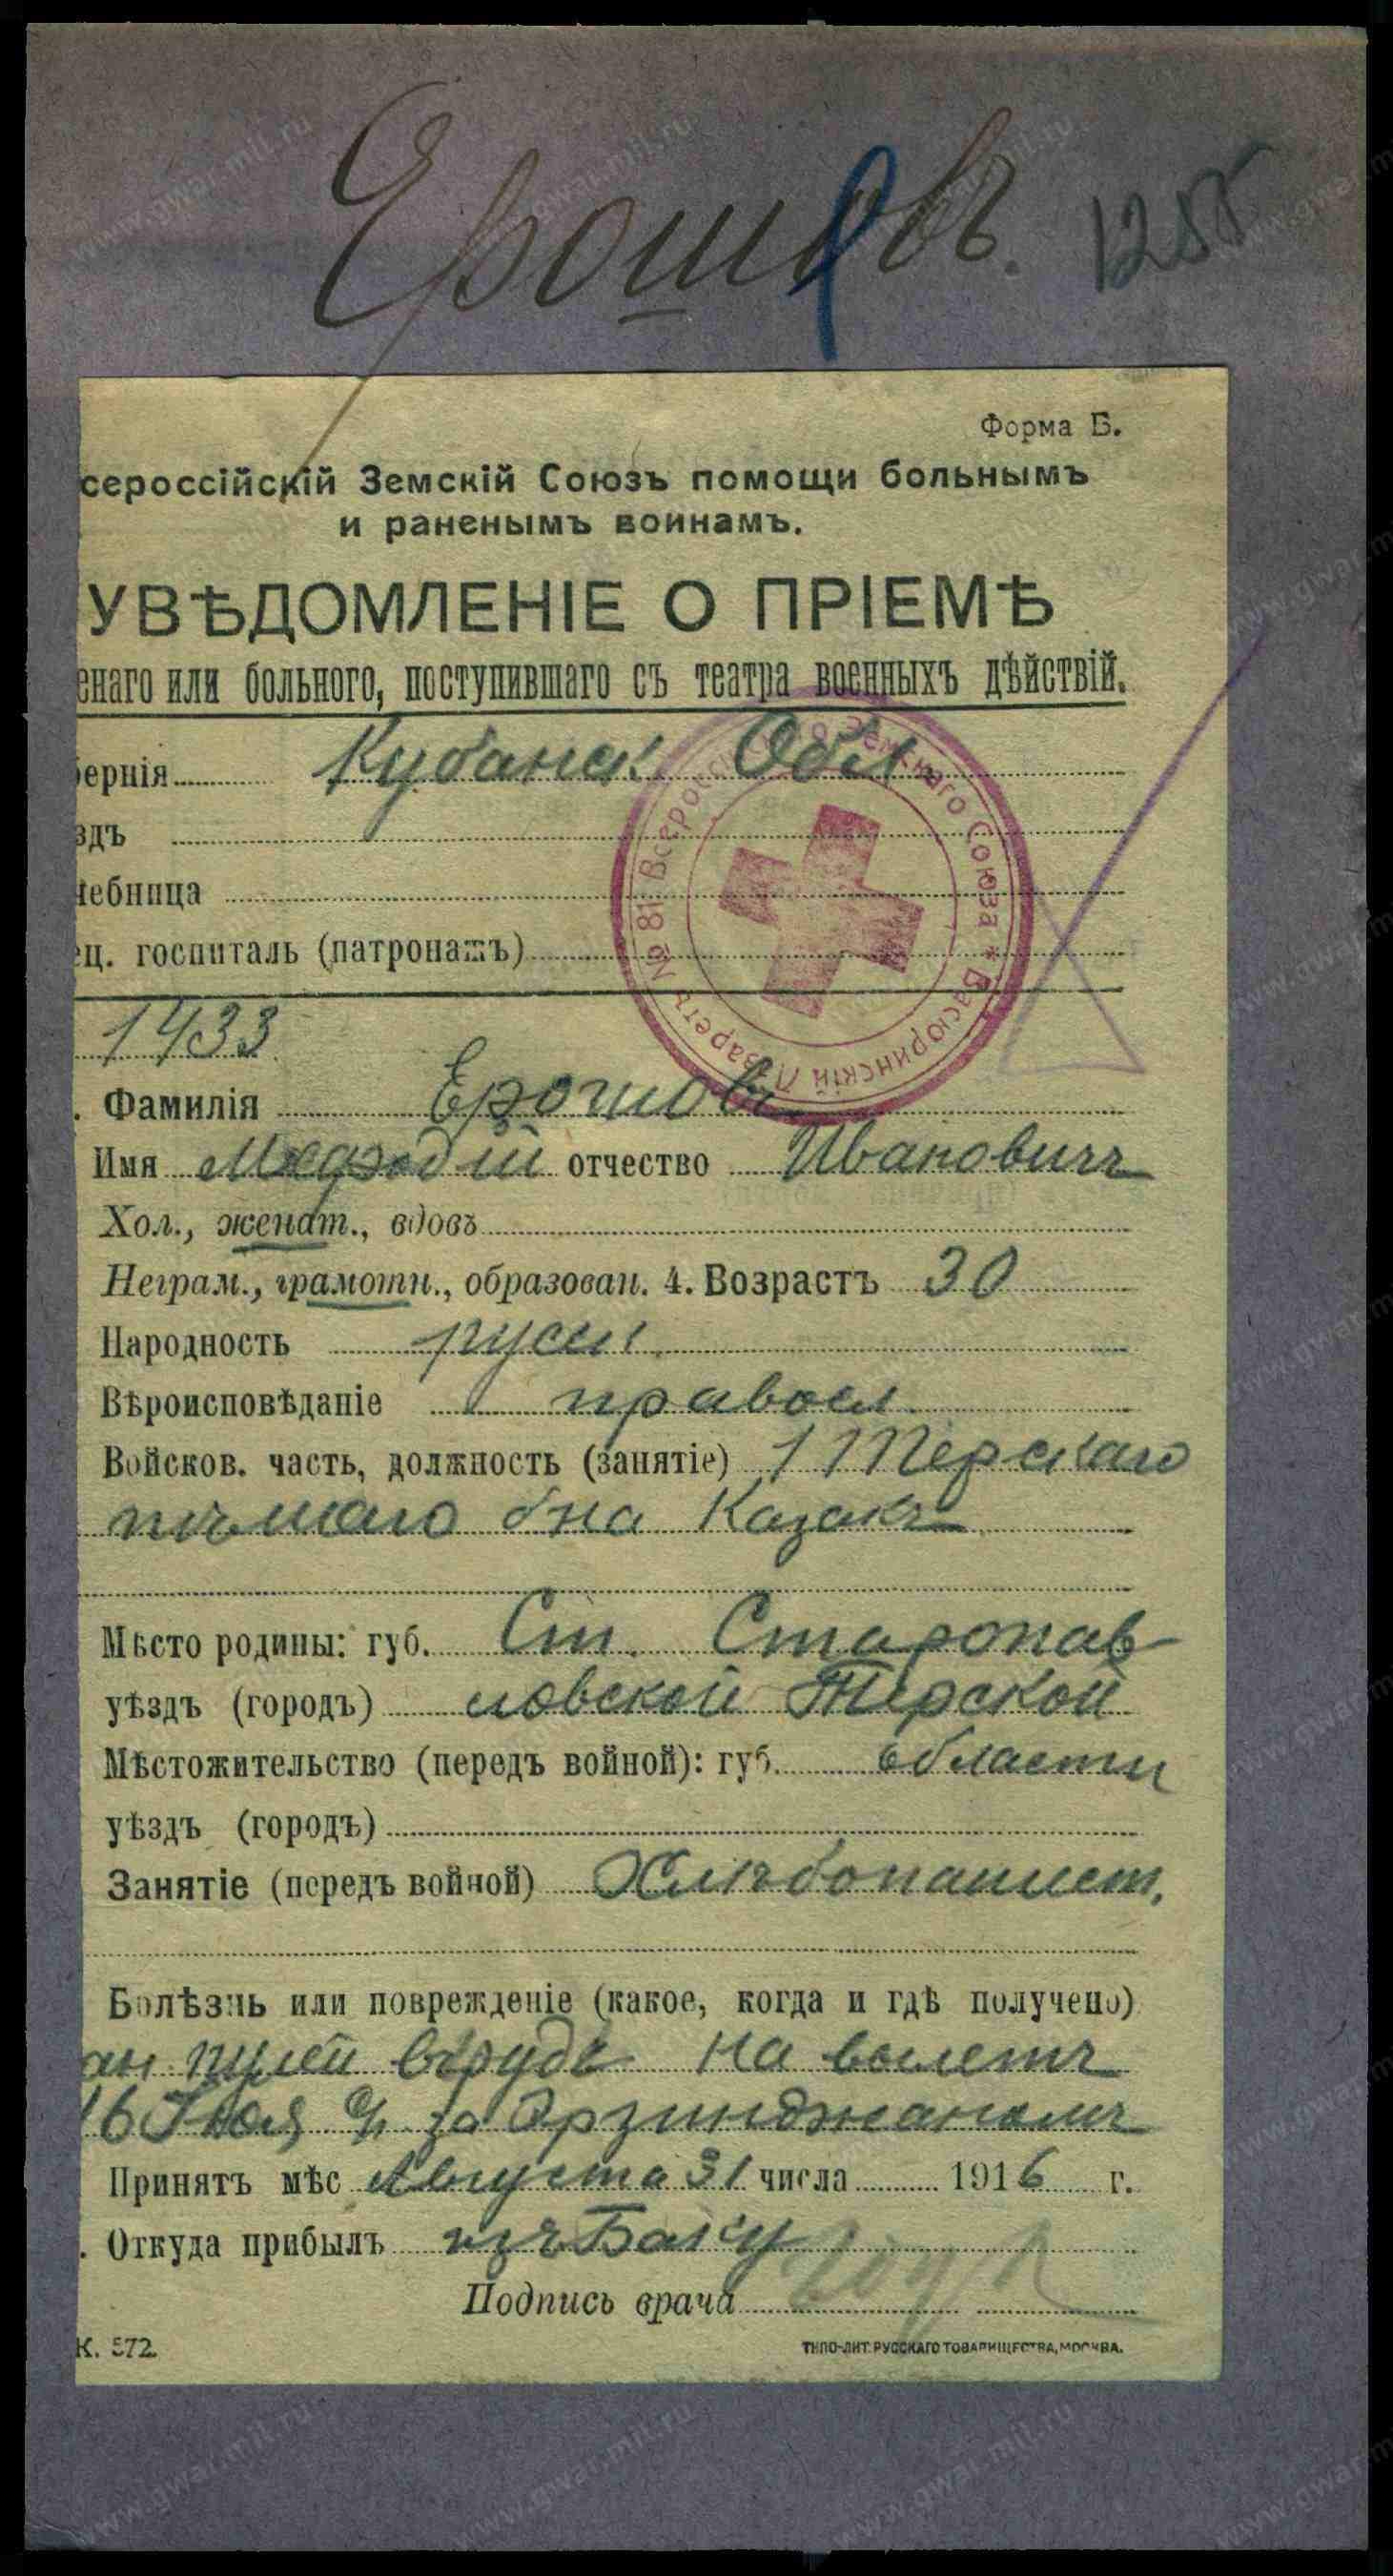 Ерошовъ. 1255
Форма Б.
сероссійскій Земскій Союзъ помощи больнымъ
и раненымъ воинамъ.
УВѢДОМЛЕНІЕ О ПРІЕМѢ
енаго или больного, поступившаго съ театра военныхъ дѣйствій.
берніа Кубанск Обл.
здъ
чебница
ец. госпиталь (патронажъ)
Васюринскій Лазаретъ № 81 Всероссійскаго Земскаго Союза *
1433
. Фамилія Ерошовъ
Имя Мефодій отчество Ивановичъ
Хол., женат., вдовъ
Неграм., грамотн., образован. 4. Возрастъ 30
Народность русск.
Вѣроисповѣданіе правосл.
Войсков. часть, должность (занятіе) 1 Терскаго
пѣшаго б-на Казакъ
Мѣсто родины: губ. Ст. Старопав
уѣздъ (городъ) ловской Терской
Мѣстожительство (передъ войной): губ. области
уѣздъ (городъ)
Занятіе (передъ войной) Хлѣбопашест.
Болѣзнь или поврежденіе (какое, когда и гдѣ получено)
ан пулей въ грудь на вылетъ
16 Іюля с/г за Эрзинджаномъ
Принятъ мѣс Августа 31 числа 1916 г.
. Откуда прибылъ изъ Баку
Подпись врача
К. 572.
ТИПО-ЛИТ. РУССКАГО ТОВАРИЩЕСТВА, МОСКВА.
www.gwar.mil.ru